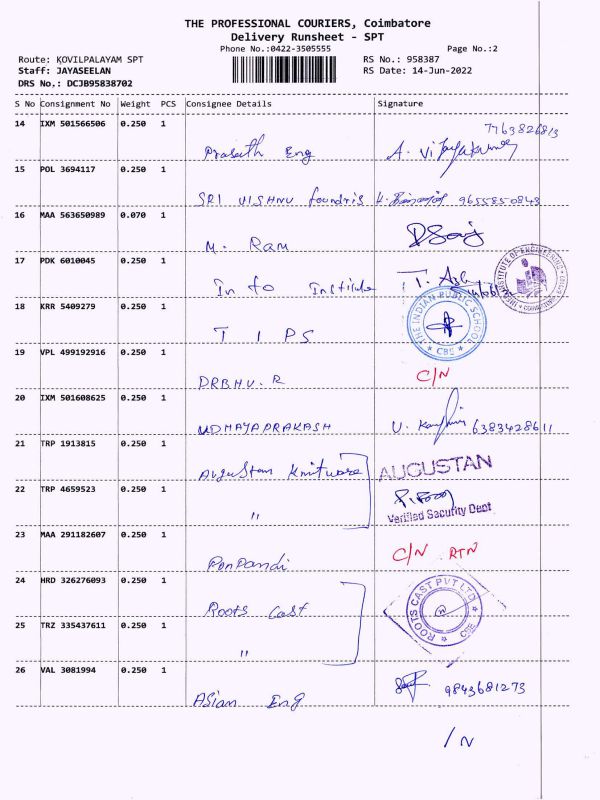 THE PROFESSIONAL COURIERS, Coimbatore
Delivery Runsheet - SPT
Phone No.:0422-3505555 Page No.:2
Route: KOVILPALAYAM SPT RS No.: 958387
Staff: JAYASEELAN RS Date: 14-Jun-2022
DRS No.: DCJB95838702
S No Consignment No Weight PCS Consignee Details Signature
14 IXM 501566506 0.250 1
7763826813
Prasath Eng A. Vijayakumar
15 POL 3694117 0.250 1
SRI VISHNU foundris 9655850843
16 MAA 563650989 0.070 1
M. Ram
17 PDK 6010045 0.250 1
Info Institute T.
18 KRR 5409279 0.250 1
THE INDIAN PUBLIC SCHOOL
* CBE *
T I P S
19 VPL 499192916 0.250 1
C/N
DRBHU.R
20 IXM 501608625 0.250 1
UDHAYAPRAKASH U. 6383428611
21 TRP 1913815 0.250 1
Augustan Knitware AUGUSTAN
22 TRP 4659523 0.250 1
" Verified Security Dept
23 MAA 291182607 0.250 1
C/N RTN
Ponpandi
24 HRD 326276093 0.250 1
Roots Cast ROOTS CAST PVT LTD
* CBE *
25 TRZ 335437611 0.250 1
"
26 VAL 3081994 0.250 1
9843681273
Asian Eng
/N